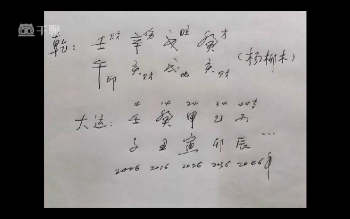 乾：壬财 辛伤 戊 癸才 (杨柳木)
午印 亥才 戌 亥才
4 14 24 34 44
大运：壬 癸 甲 乙 丙
子 丑 寅 卯 辰 …
2006 2016 2026 2036 2046年